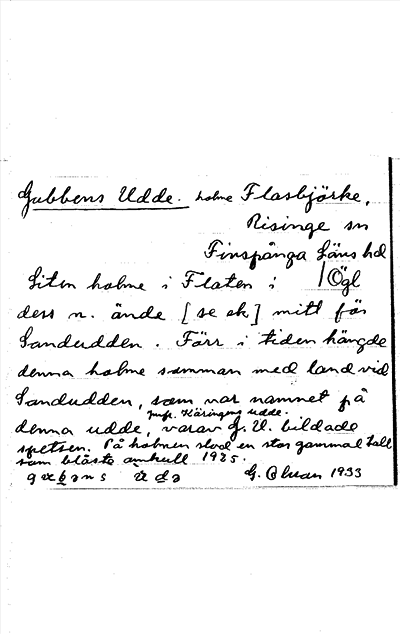 Gubbens Udde. holme Flasbjörke,
Risinge sn
Finspånga Läns hd
Liten holme i Flaten i / Ögl
dess n. ände [se ek] mitt för
Sandudden. Förr i tiden hängde
denna holme samman med land vid
Sandudden, som var namnet på
jmf. Käringens udde.
denna udde, varav G. U. bildade
spetsen. På holmen stod en stor gammal tall
som blåste omkull 1925.
G. Olsson 1933